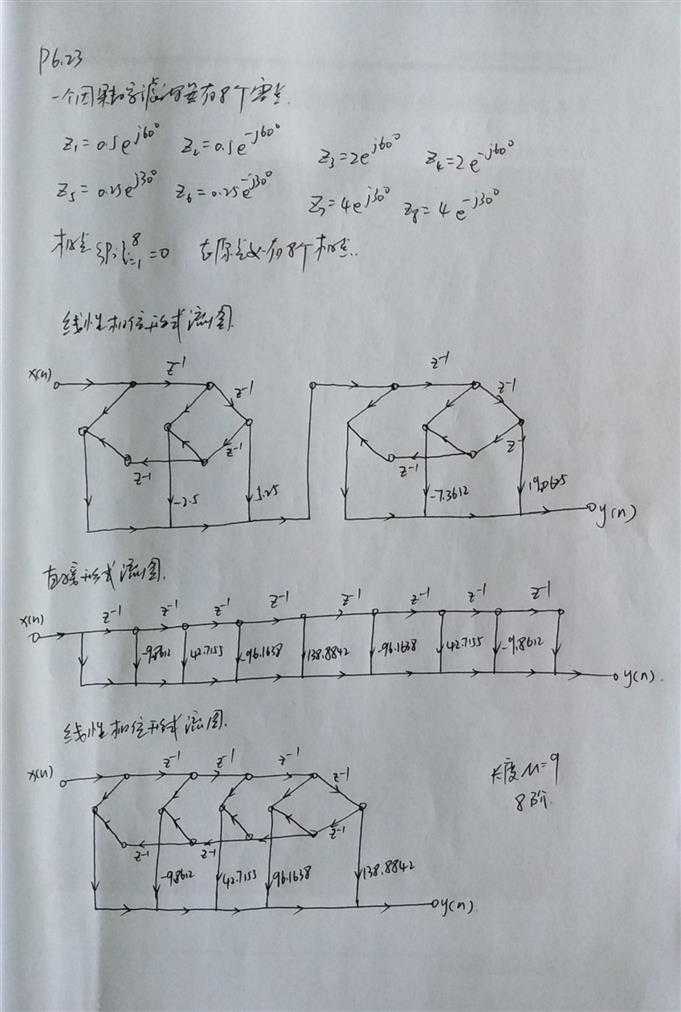 P6.23
一个因果数字滤波器有8个零点.
Z₁=0.5e^{j60°} Z₂=0.5e^{-j60°} Z₃=2e^{j60°} Z₄=2e^{-j60°}
Z₅=0.25e^{j30°} Z₆=0.25e^{-j30°} Z₇=4e^{j30°} Z₈=4e^{-j30°}
极点 {Pi}⁸ᵢ₌₁=0 有8个极点.
线性相位形式流图.
x(n) z⁻¹ z⁻¹ z⁻¹ z⁻¹ -2.5 5.25 z⁻¹ z⁻¹ z⁻¹ z -7.3612 19.0625 y(n)
直接形式流图.
x(n) z⁻¹ z⁻¹ z⁻¹ z⁻¹ z⁻¹ z⁻¹ z⁻¹ z⁻¹
-9.8612 42.7155 -96.1638 138.8842 -96.1638 42.7155 -9.8612 y(n).
线性相位形式流图.
x(n) z⁻¹ z⁻¹ z⁻¹ z⁻¹
z⁻¹ z⁻¹ z⁻¹
-9.8612 42.7155 -96.1638 138.8842
y(n).
长度M=9
8阶.